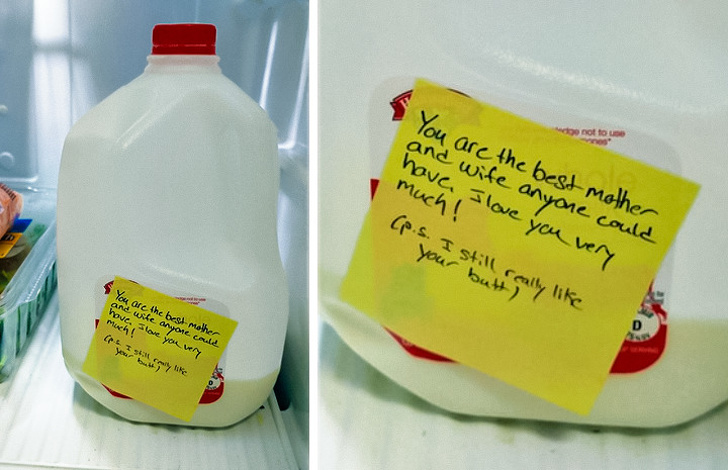 You are the best mother
and wife anyone could
have. I love you very
much!
(p.s. I still really like
your butt)
You are the best mother
and wife anyone could
have. I love you very
much!
(p.s. I still really like
your butt)
edge not to use
ones*
D